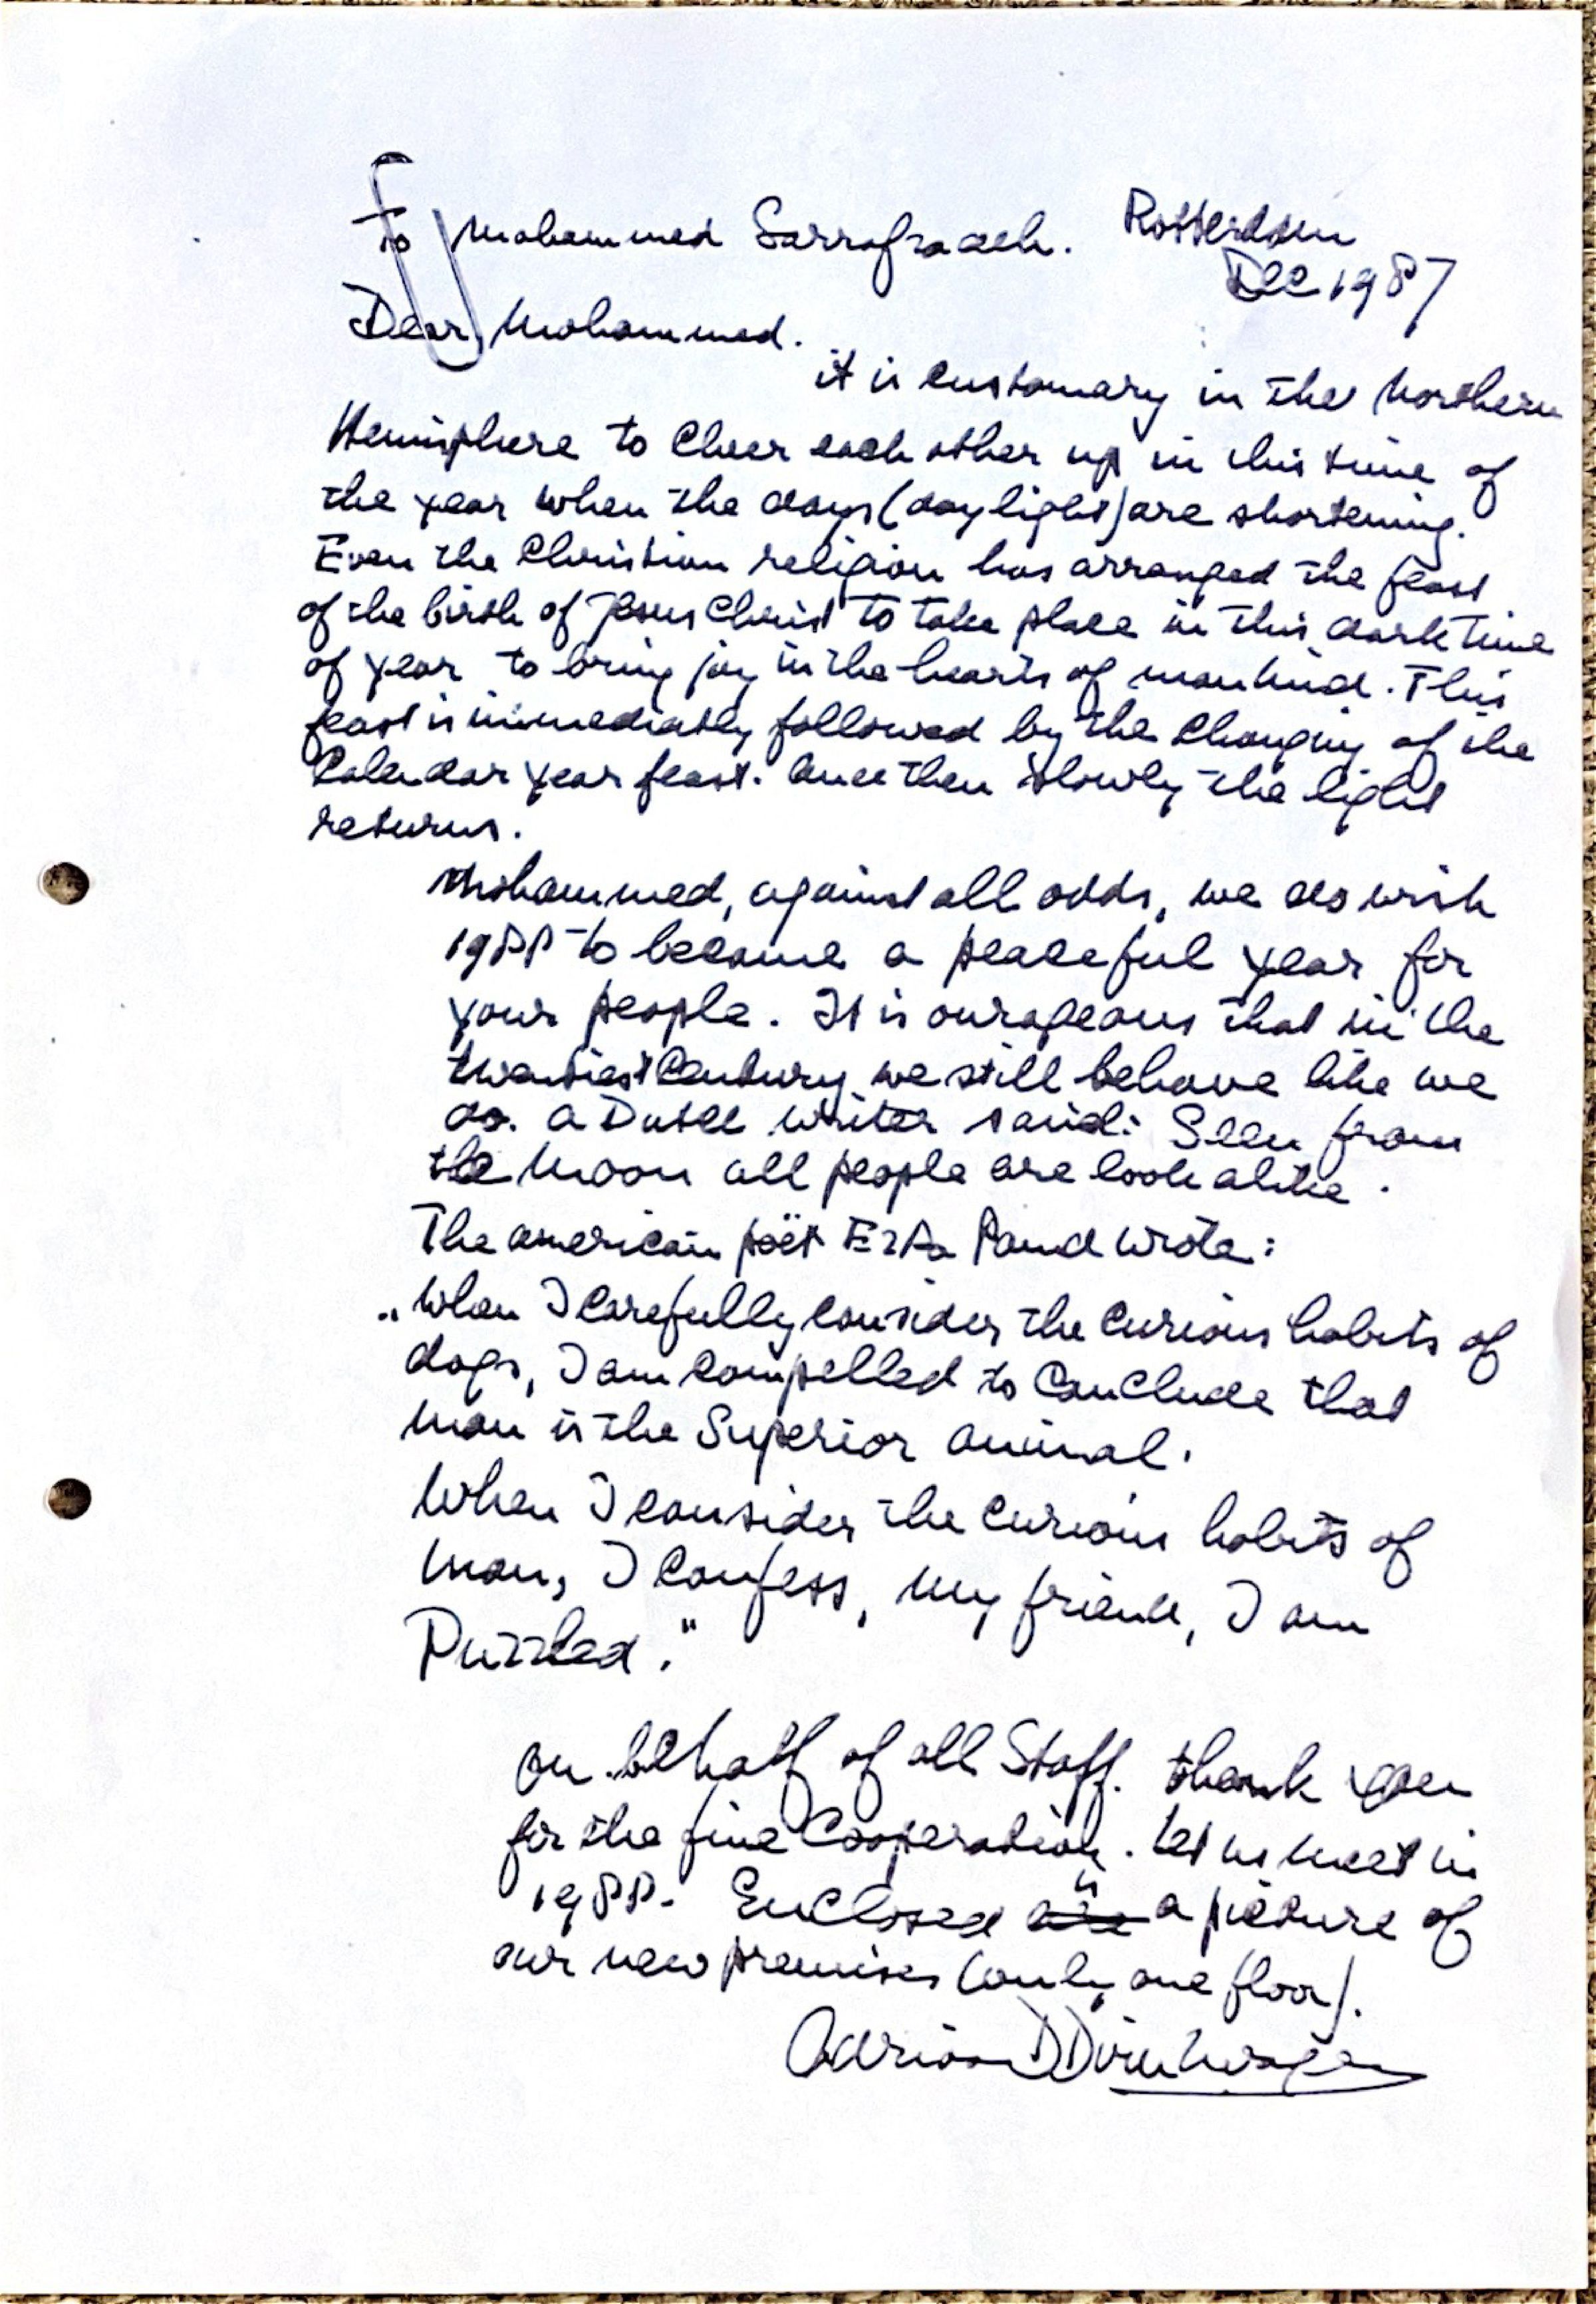 To Mohammed Sarrafzadeh. Rotterdam
Dec 1987
Dear, Mohammed.
it is customary in the Northern
Hemisphere to cheer each other up in this time of
the year when the days (daylight) are shortening.
Even the Christian religion has arranged the feast
of the birth of Jesus Christ to take place in this dark time
of year to bring joy in the hearts of mankind. This
feast is immediately followed by the changing of the
Calendar year feast. And then slowly the light
returns.
Mohammed, against all odds, we do wish
1988 to become a peaceful year for
your people. It is ourageous that in the
twentiest Century we still behave like we
do. a Dutch writer said: Seen from
the moon all people are look alike.
The american poët Ezra Pound wrote:
„When I carefully consider the curious habits of
dogs, I am compelled to conclude that
man is the Superior animal.
When I consider the curious habits of
man, I confess, my friend, I am
Puzzled."
on behalf of all Staff. thank you
for the fine Cooperation. let us meet in
1988. Enclosed is a picture of
our new premises (only one floor).
Adriaan